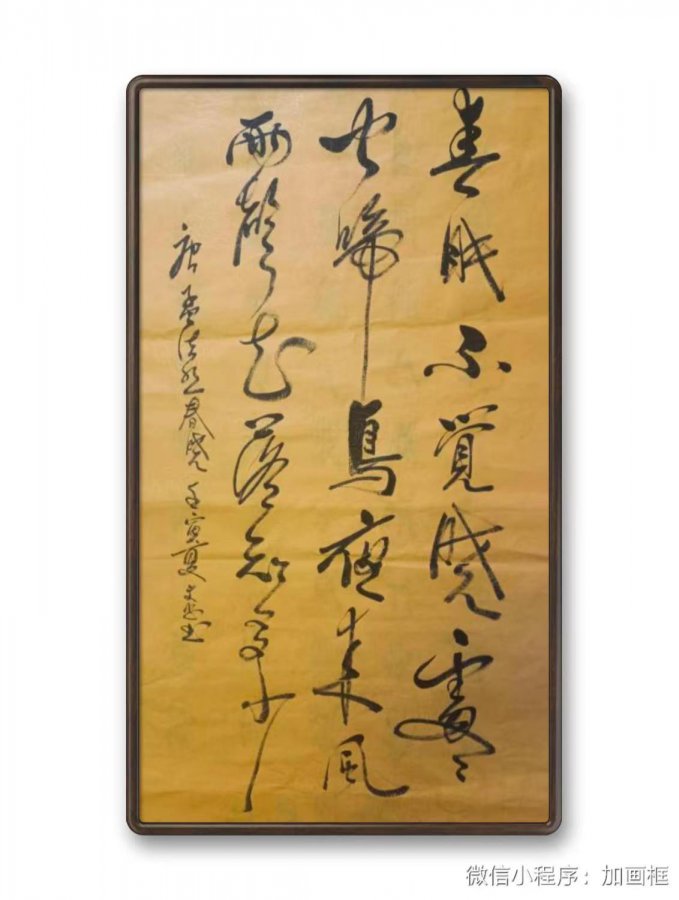 春眠不覺曉處々
聞啼鳥夜来風
雨聲花落知多少
唐孟浩然春曉壬寅夏书
微信小程序：加画框